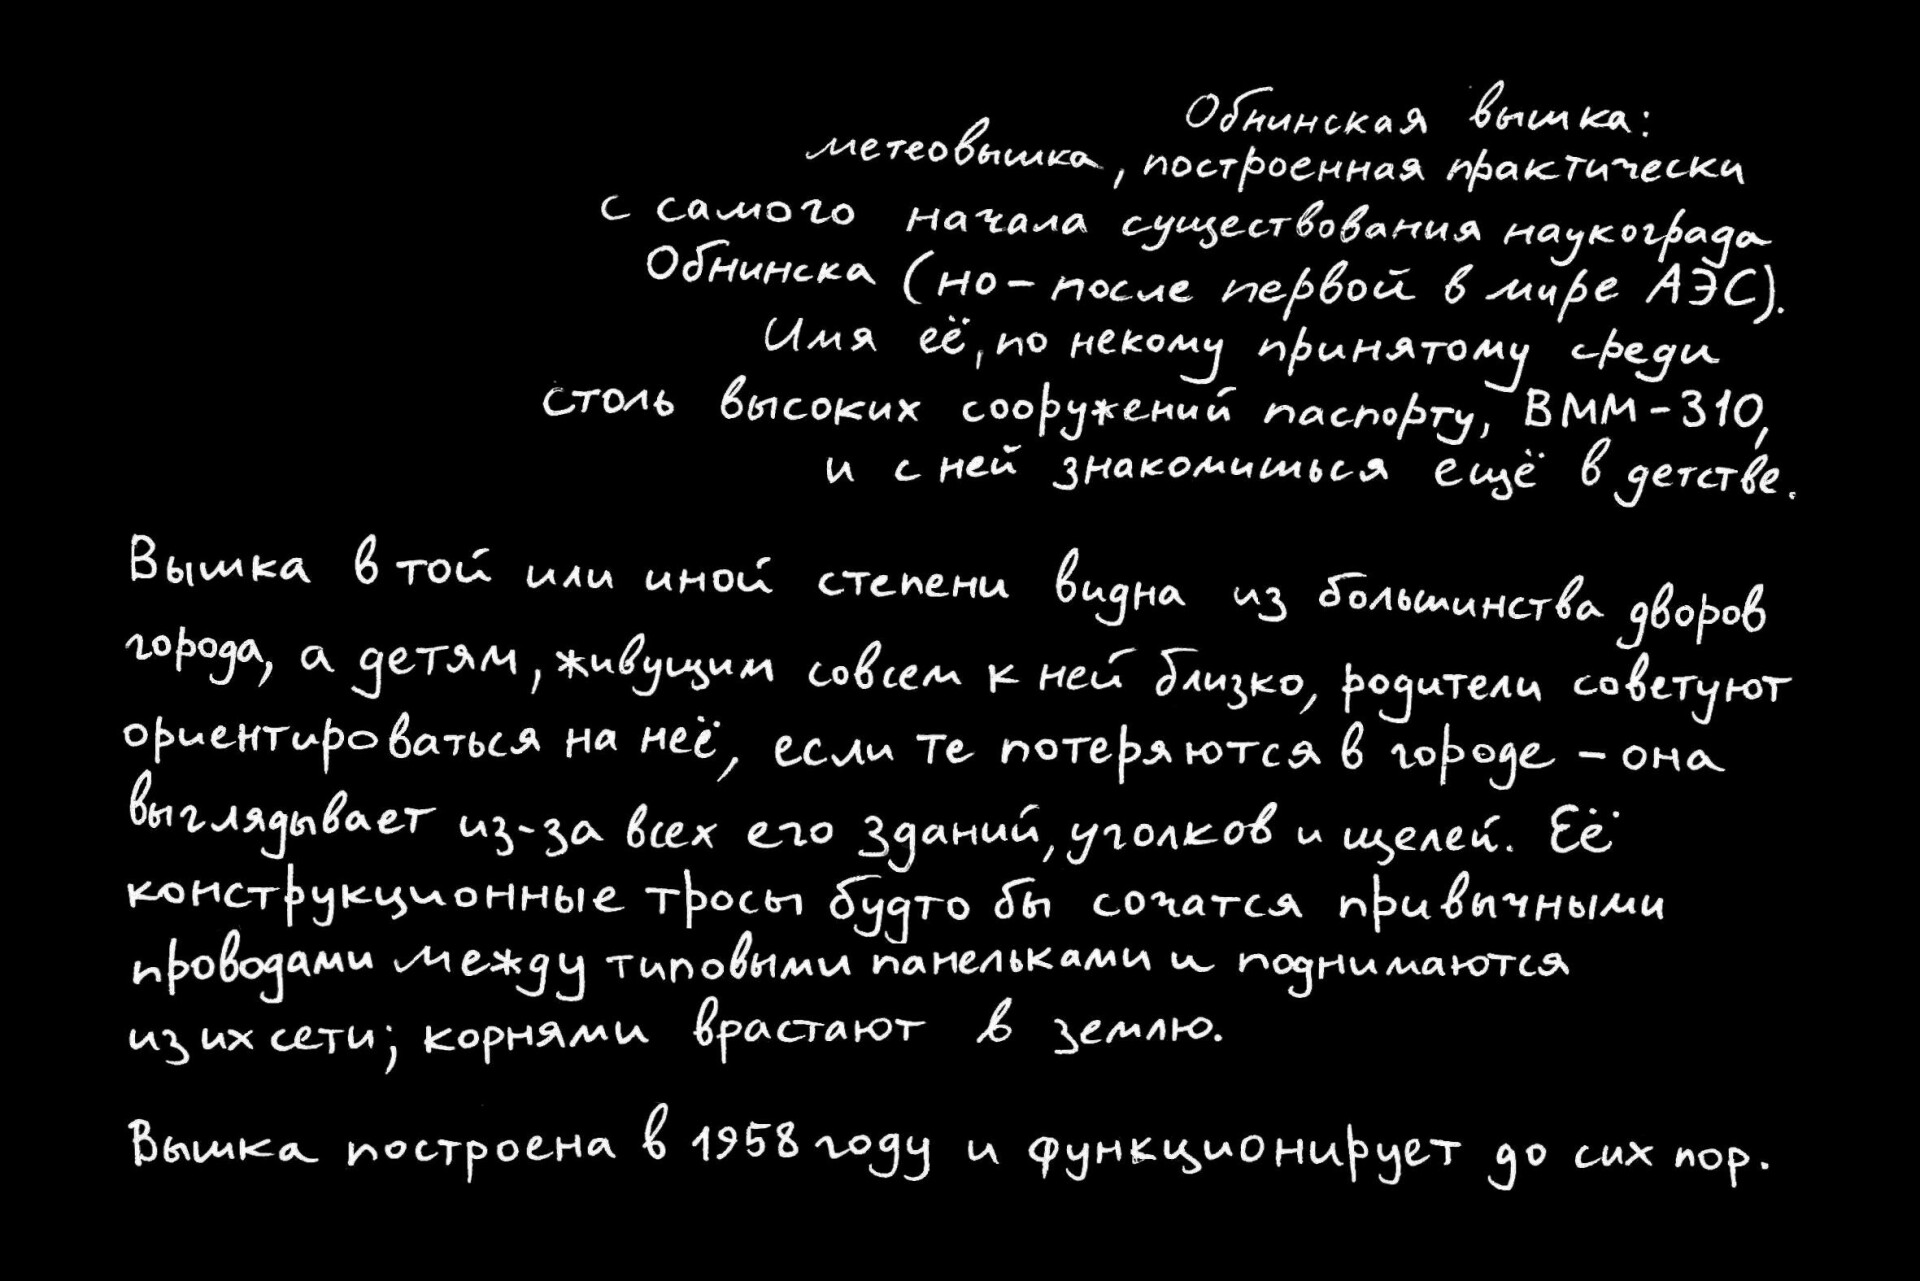 Обнинская вышка:
метеовышка, построенная практически
с самого начала существования наукограда
Обнинска (но – после первой в мире АЭС).
Имя её, по некому принятому среди
столь высоких сооружений паспорту, ВММ-310,
и с ней знакомишься ещё в детстве.
Вышка в той или иной степени видна из большинства дворов
города, а детям, живущим совсем к ней близко, родители советуют
ориентироваться на неё, если те потеряются в городе – она
выглядывает из-за всех его зданий, уголков и щелей. Её
конструкционные тросы будто бы сочатся привычными
проводами между типовыми панельками и поднимаются
из их сети; корнями врастают в землю.
Вышка построена в 1958 году и функционирует до сих пор.